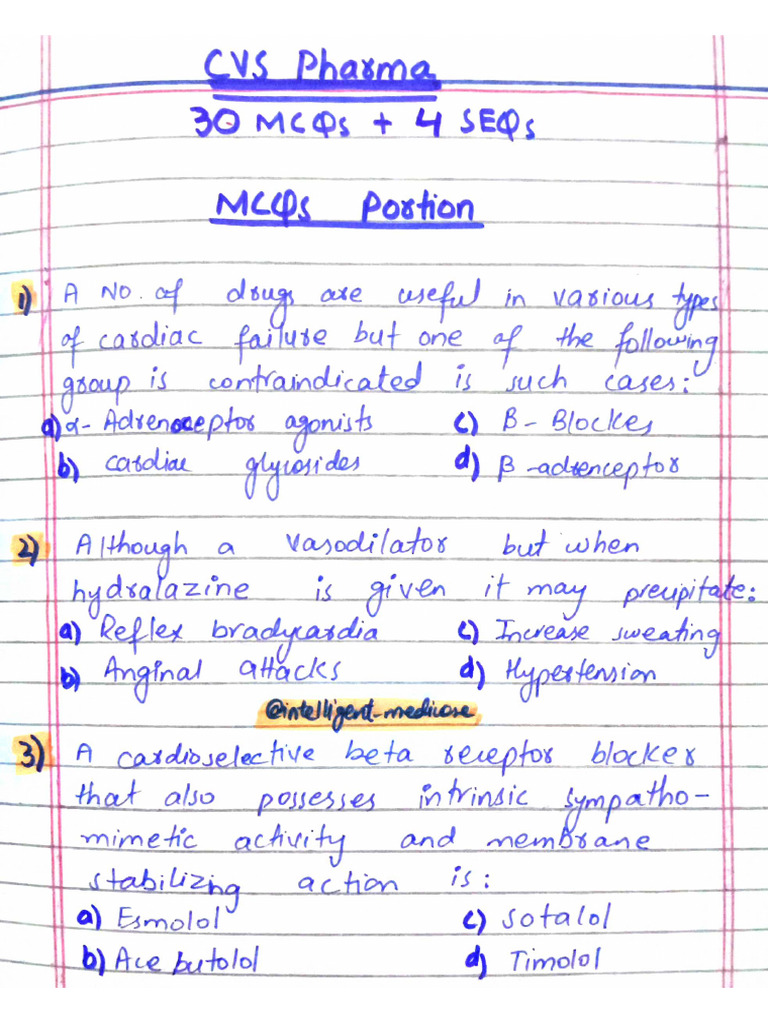 CVS Pharma
30 MCQs + 4 SEQs
MCQs Portion
1) A No. of drugs are useful in various types
of cardiac failure but one of the following
group is contraindicated is such cases:
a) α- Adrenoceptor agonists c) β- Blockes
b) Cardiac glycosides d) β -adrenceptor
2) Although a vasodilator but when
hydralazine is given it may precipitate:
a) Reflex bradycardia c) Increase sweating
b) Anginal attacks d) Hypertension
@intelligent_medicose
3) A cardioselective beta receptor blocker
that also possesses intrinsic sympatho-
mimetic activity and membrane
stabilizing action is:
a) Esmolol c) Sotalol
b) Ace butolol d) Timolol